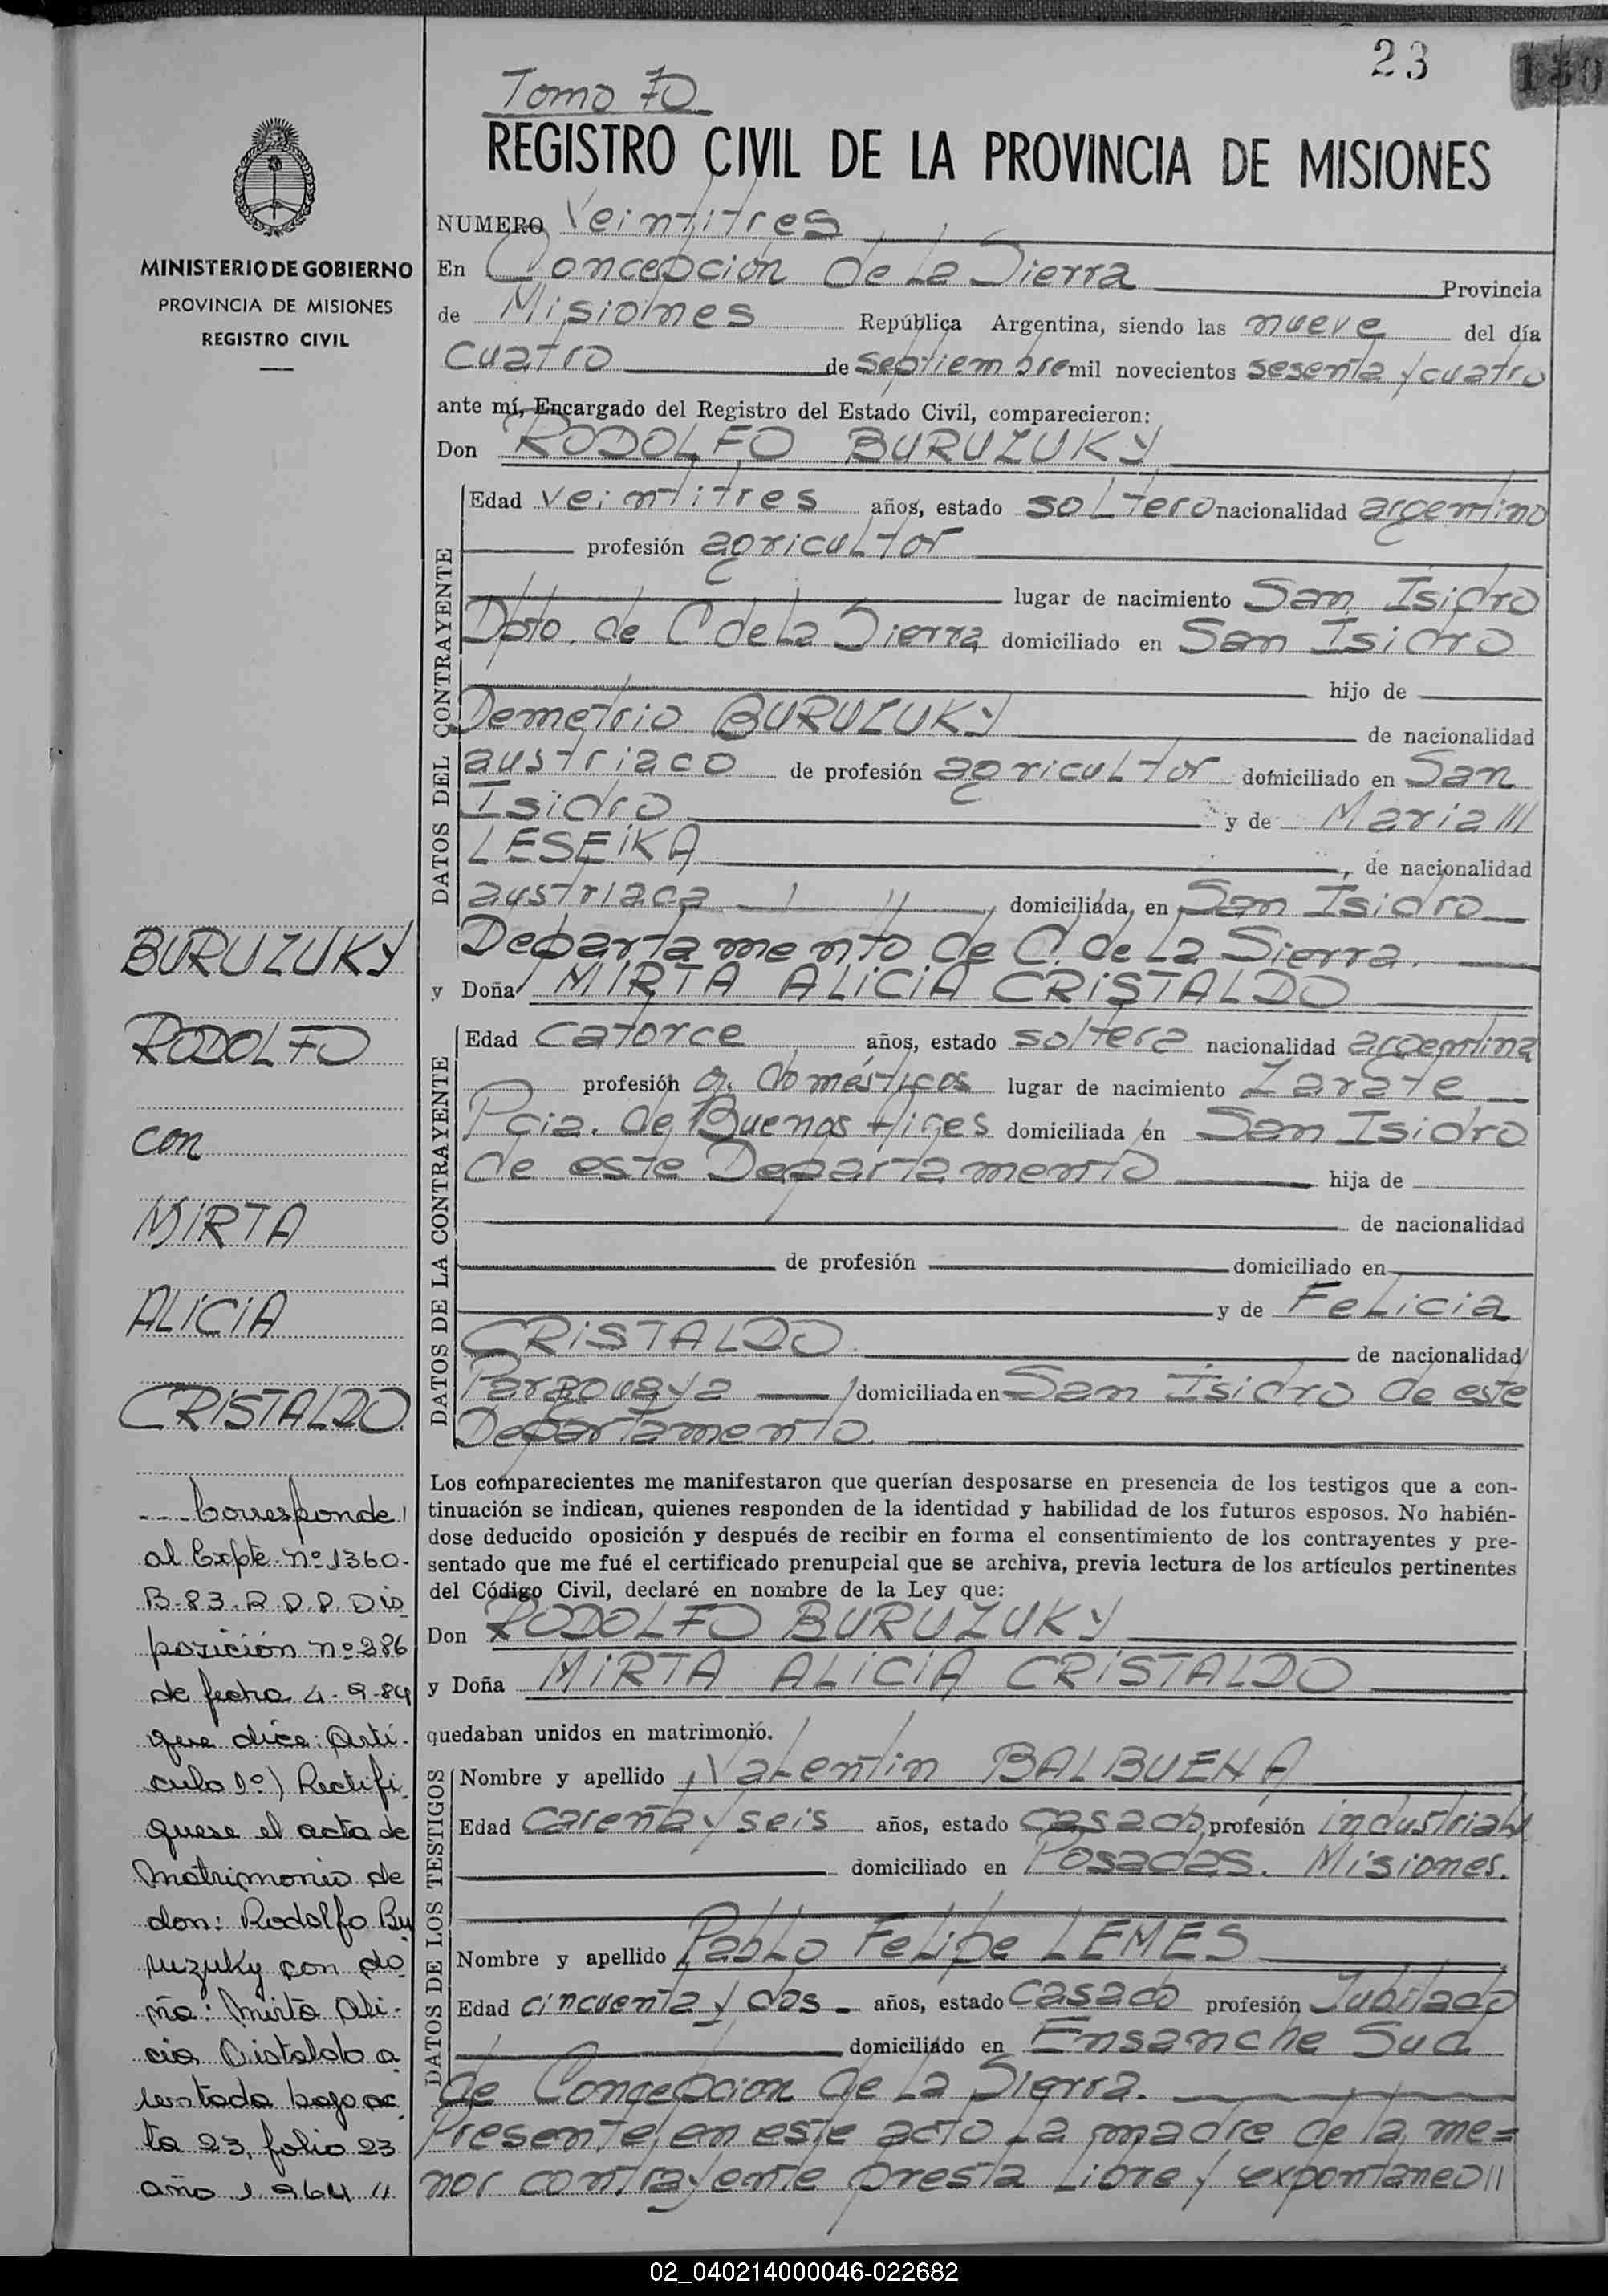 23
Tomo 70
REGISTRO CIVIL DE LA PROVINCIA DE MISIONES
MINISTERIO DE GOBIERNO
PROVINCIA DE MISIONES
REGISTRO CIVIL
NUMERO Veintitres
En Concepcion de La Sierra Provincia
de Misiones República Argentina, siendo las nueve del día
cuatro de septiembre mil novecientos sesenta y cuatro
ante mí, Encargado del Registro del Estado Civil, comparecieron:
Don RODOLFO BURUZUKY
DATOS DEL CONTRAYENTE
Edad veintitres años, estado soltero nacionalidad argentino
profesión agricultor
lugar de nacimiento San Isidro
Dpto. de C. de La Sierra domiciliado en San Isidro
hijo de
Demetrio BURUZUKY de nacionalidad
austriaco de profesión agricultor domiciliado en San
Isidro y de Maria
LESEIKA, de nacionalidad
austriaca domiciliada en San Isidro
Departamento de C. de La Sierra.
y Doña MIRTA ALICIA CRISTALDO
DATOS DE LA CONTRAYENTE
Edad catorce años, estado soltera nacionalidad argentina
profesión q. domésticos lugar de nacimiento Zarate
Pcia. de Buenos Aires domiciliada en San Isidro
de este Departamento hija de
de nacionalidad
de profesión domiciliado en
y de Felicia
CRISTALDO de nacionalidad
Paraguaya domiciliada en San Isidro de este
Departamento.
Los comparecientes me manifestaron que querían desposarse en presencia de los testigos que a con-
tinuación se indican, quienes responden de la identidad y habilidad de los futuros esposos. No habién-
dose deducido oposición y después de recibir en forma el consentimiento de los contrayentes y pre-
sentado que me fué el certificado prenupcial que se archiva, previa lectura de los artículos pertinentes
del Código Civil, declaré en nombre de la Ley que:
Don RODOLFO BURUZUKY
y Doña MIRTA ALICIA CRISTALDO
quedaban unidos en matrimonio.
DATOS DE LOS TESTIGOS
Nombre y apellido Valentin BALBUENA
Edad careñta y seis años, estado casado profesión industrial
domiciliado en Posadas. Misiones.
Nombre y apellido Pablo Felipe LEMES
Edad cincuenta y dos años, estado casado profesión Jubilado
domiciliado en Ensanche Sud
de Concepcion de La Sierra.
Presente en este acto La madre de la me=
nor contrayente presta Libre y expontaneo
BURUZUKY
RODOLFO
con
MIRTA
ALICIA
CRISTALDO.
Corresponde
al Expte. nº 1360-
B-83-R.D.P. Dis
posición nº 386
de fecha 4-9-84
que dice: Artí-
culo 1º) Rectifi
quese el acta de
Matrimonio de
don: Rodolfo Bu
ruzuky con do
ña: Mirta Ali-
cia Cristaldo a
sentada bajo ac
ta 23, folio 23
año 1964
02_040214000046-022682